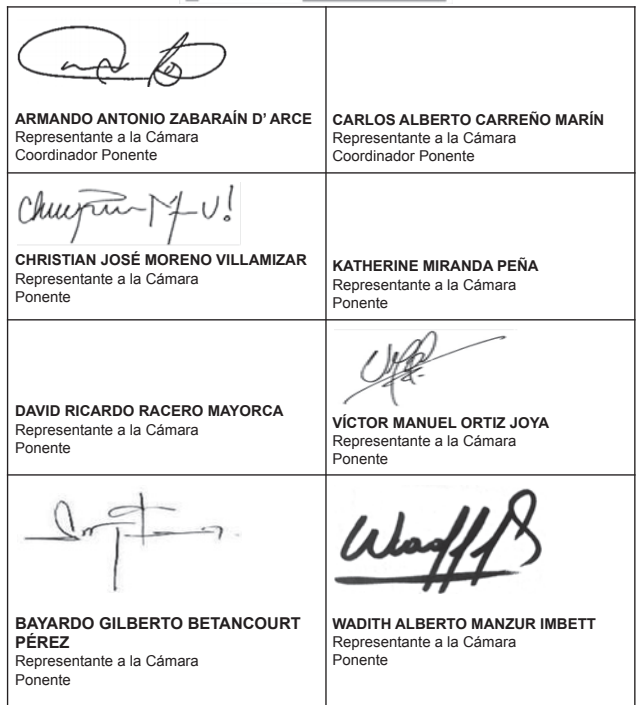 ARMANDO ANTONIO ZABARAÍN D’ ARCE
Representante a la Cámara
Coordinador Ponente
CARLOS ALBERTO CARREÑO MARÍN
Representante a la Cámara
Coordinador Ponente
CHRISTIAN JOSÉ MORENO VILLAMIZAR
Representante a la Cámara
Ponente
KATHERINE MIRANDA PEÑA
Representante a la Cámara
Ponente
DAVID RICARDO RACERO MAYORCA
Representante a la Cámara
Ponente
VÍCTOR MANUEL ORTIZ JOYA
Representante a la Cámara
Ponente
BAYARDO GILBERTO BETANCOURT
PÉREZ
Representante a la Cámara
Ponente
WADITH ALBERTO MANZUR IMBETT
Representante a la Cámara
Ponente